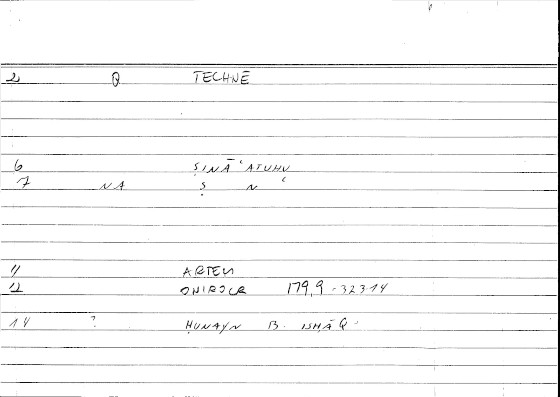 2 Q TECHNĒ
6 ṢINĀ ʿATUHU
7 NA Ṣ N ʿ
11 ARTEM
12 ONIROCR 179,9 - 323.14
14 ? ḤUNAYN B. ISḤĀQ